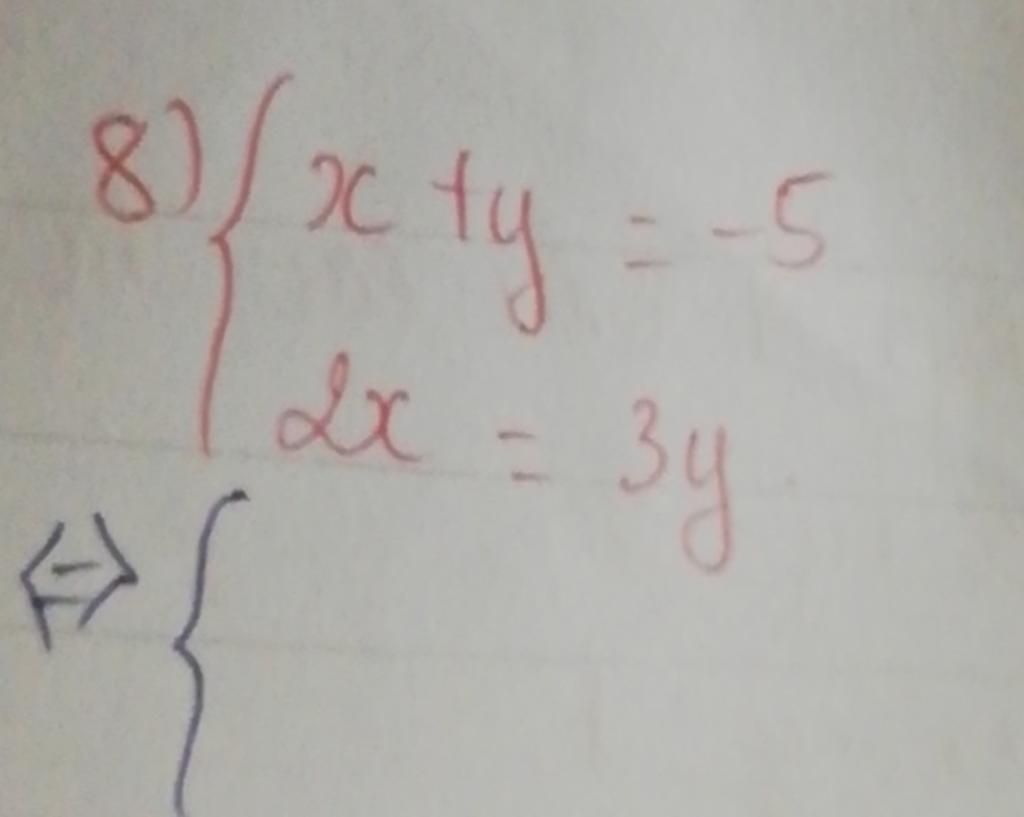 8) { x + y = -5
2x = 3y
⇔ {